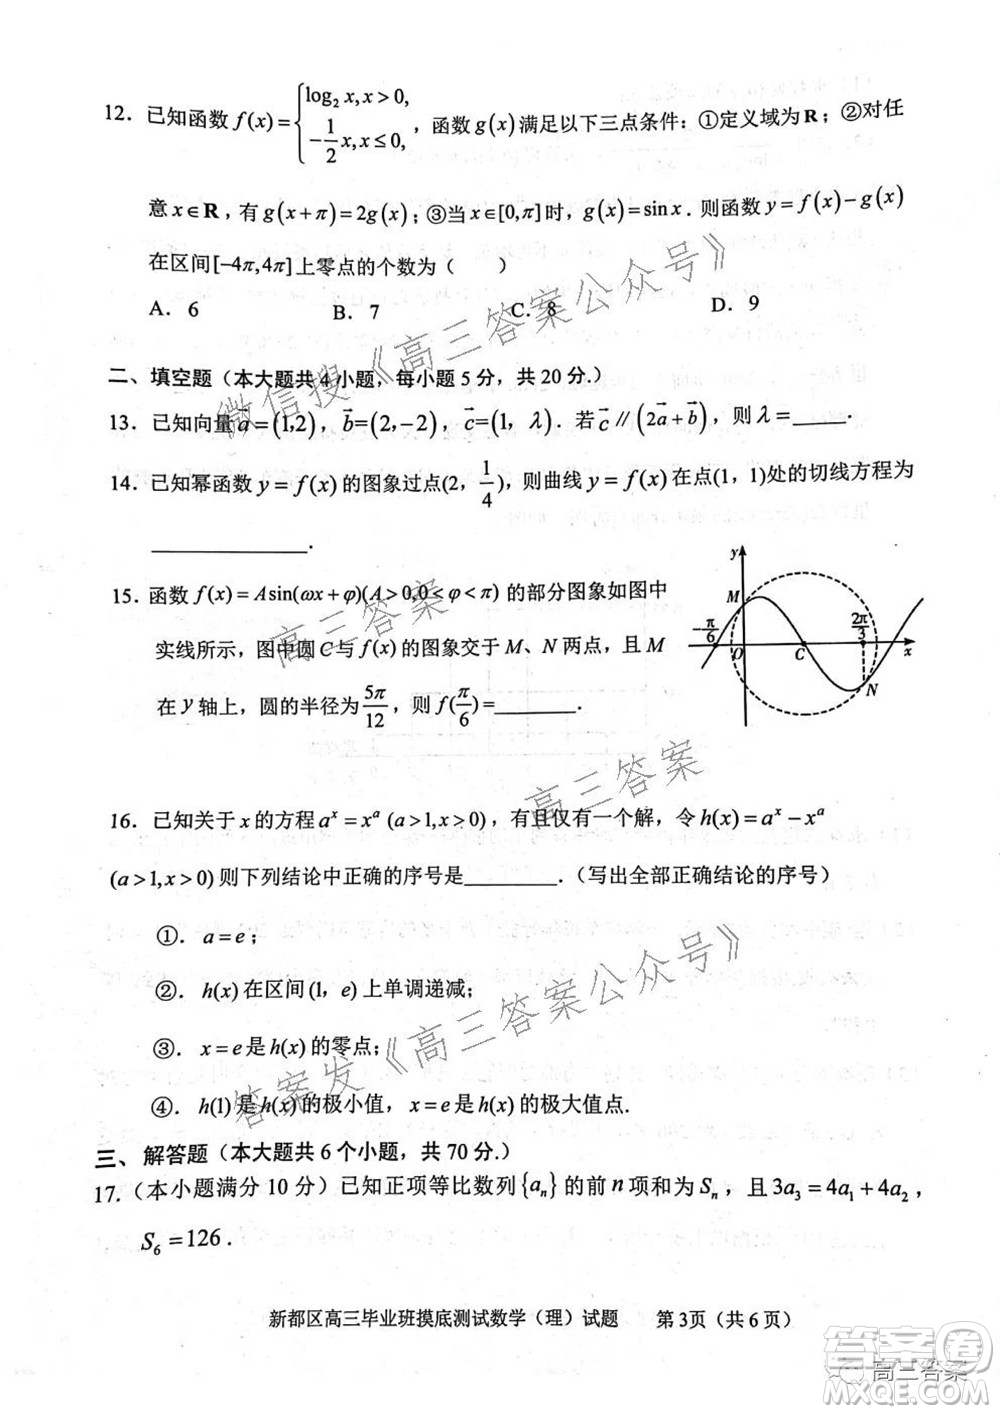 12．已知函数 f(x)={log₂ x, x>0, -1/2 x, x≤0, ，函数 g(x) 满足以下三点条件：①定义域为R；②对任
意 x∈R，有 g(x+π)=2g(x)；③当 x∈[0,π] 时，g(x)=sin x．则函数 y=f(x)-g(x)
在区间[-4π,4π]上零点的个数为（　　）
A．6　B．7　C．8　D．9
二、填空题（本大题共 4 小题，每小题 5 分，共 20 分.）
13．已知向量 a⃗=(1,2)，b⃗=(2,-2)，c⃗=(1, λ)．若 c⃗∥(2a⃗+b⃗)，则 λ=_____．
14．已知幂函数 y=f(x) 的图象过点(2, 1/4)，则曲线 y=f(x) 在点(1，1)处的切线方程为
______________．
15．函数 f(x)=Asin(ωx+φ)(A>0,0<φ<π) 的部分图象如图中
实线所示，图中圆 C 与 f(x) 的图象交于 M、N 两点，且 M
在 y 轴上，圆的半径为 5π/12，则 f(π/6)=_______．
y
M
-π/6
O
C
2π/3
x
N
16．已知关于 x 的方程 aˣ=xᵃ (a>1,x>0)，有且仅有一个解，令 h(x)=aˣ-xᵃ
(a>1,x>0) 则下列结论中正确的序号是________．（写出全部正确结论的序号）
①．a=e；
②．h(x) 在区间(1，e)上单调递减；
③．x=e 是 h(x) 的零点；
④．h(1) 是 h(x) 的极小值，x=e 是 h(x) 的极大值点.
三、解答题（本大题共 6 个小题，共 70 分.）
17.（本小题满分 10 分）已知正项等比数列{aₙ}的前 n 项和为 Sₙ，且 3a₃=4a₁+4a₂，
S₆=126．
新都区高三毕业班摸底测试数学（理）试题　第 3页（共 6 页）
微信搜《高三答案公众号》
高三答案
高三答案
答案发《高三答案公众号》
高三答案
答案圈
MXQE.COM